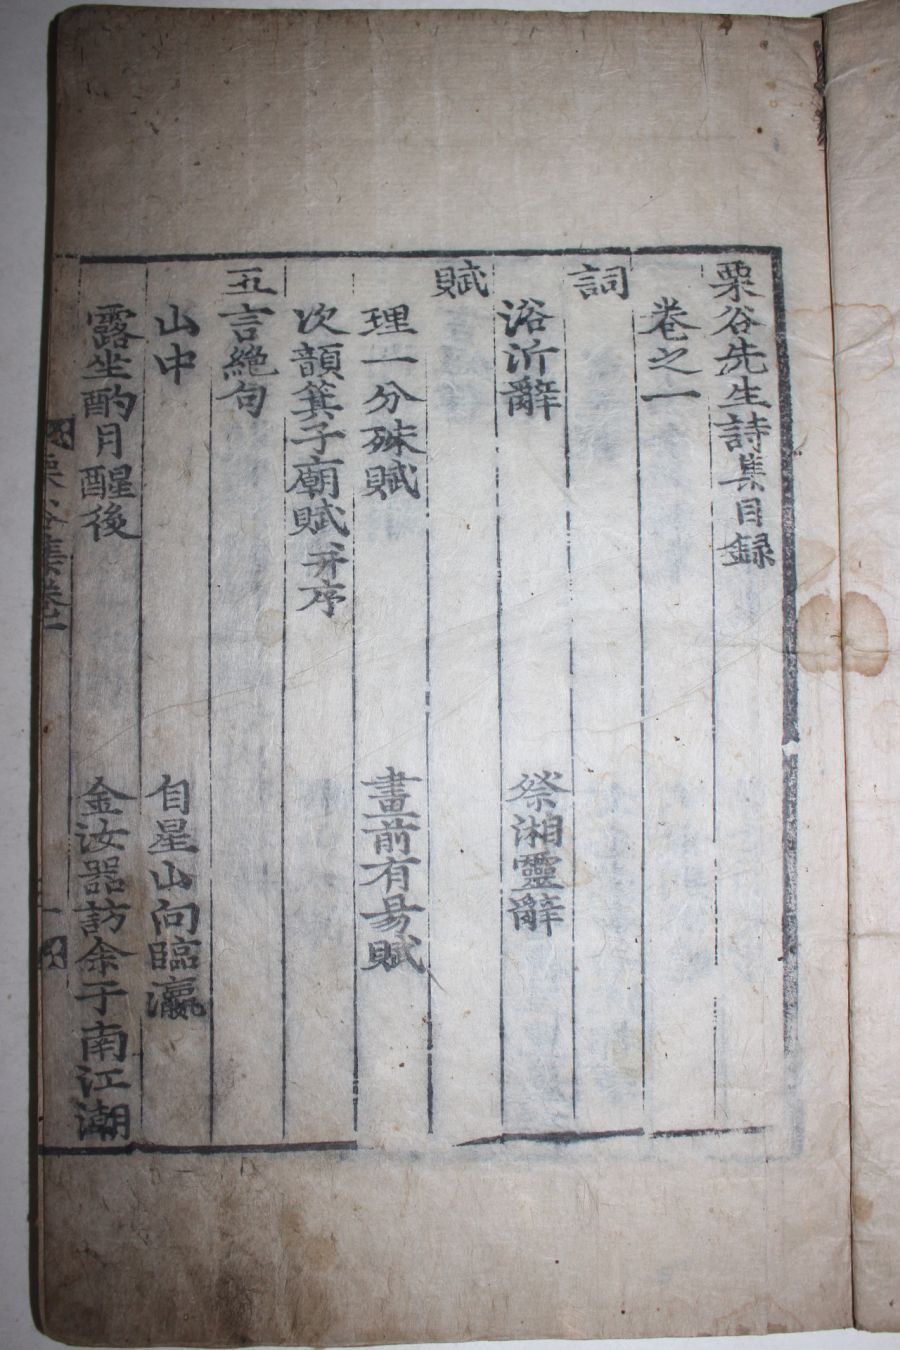 栗谷先生詩集目録
卷之一
詞
浴沂辭 祭湘靈辭
賦
理一分殊賦 畫前有易賦
次韻箕子廟賦 幷序
五言絶句
山中 自星山向臨瀛
露坐酌月醒後 金汝器訪余于南江潮
栗谷集卷一